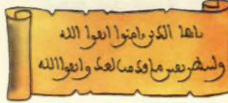 يايها الذين ءامنوا اتقوا الله
ولتنظر نفس ما قدمت لغد واتقوا الله